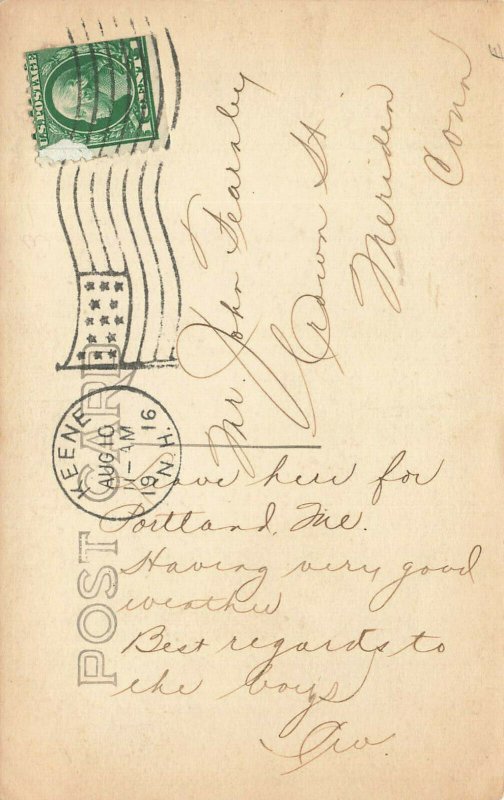 POST CARD
U.S. POSTAGE
1 CENT 1
KEENE
AUG 10
AM
1916
N.H.
Mr. John Fearnley
Crown St
Meriden
Conn
Leave here for
Portland, Me.
Having very good
weather
Best regards to
the boys